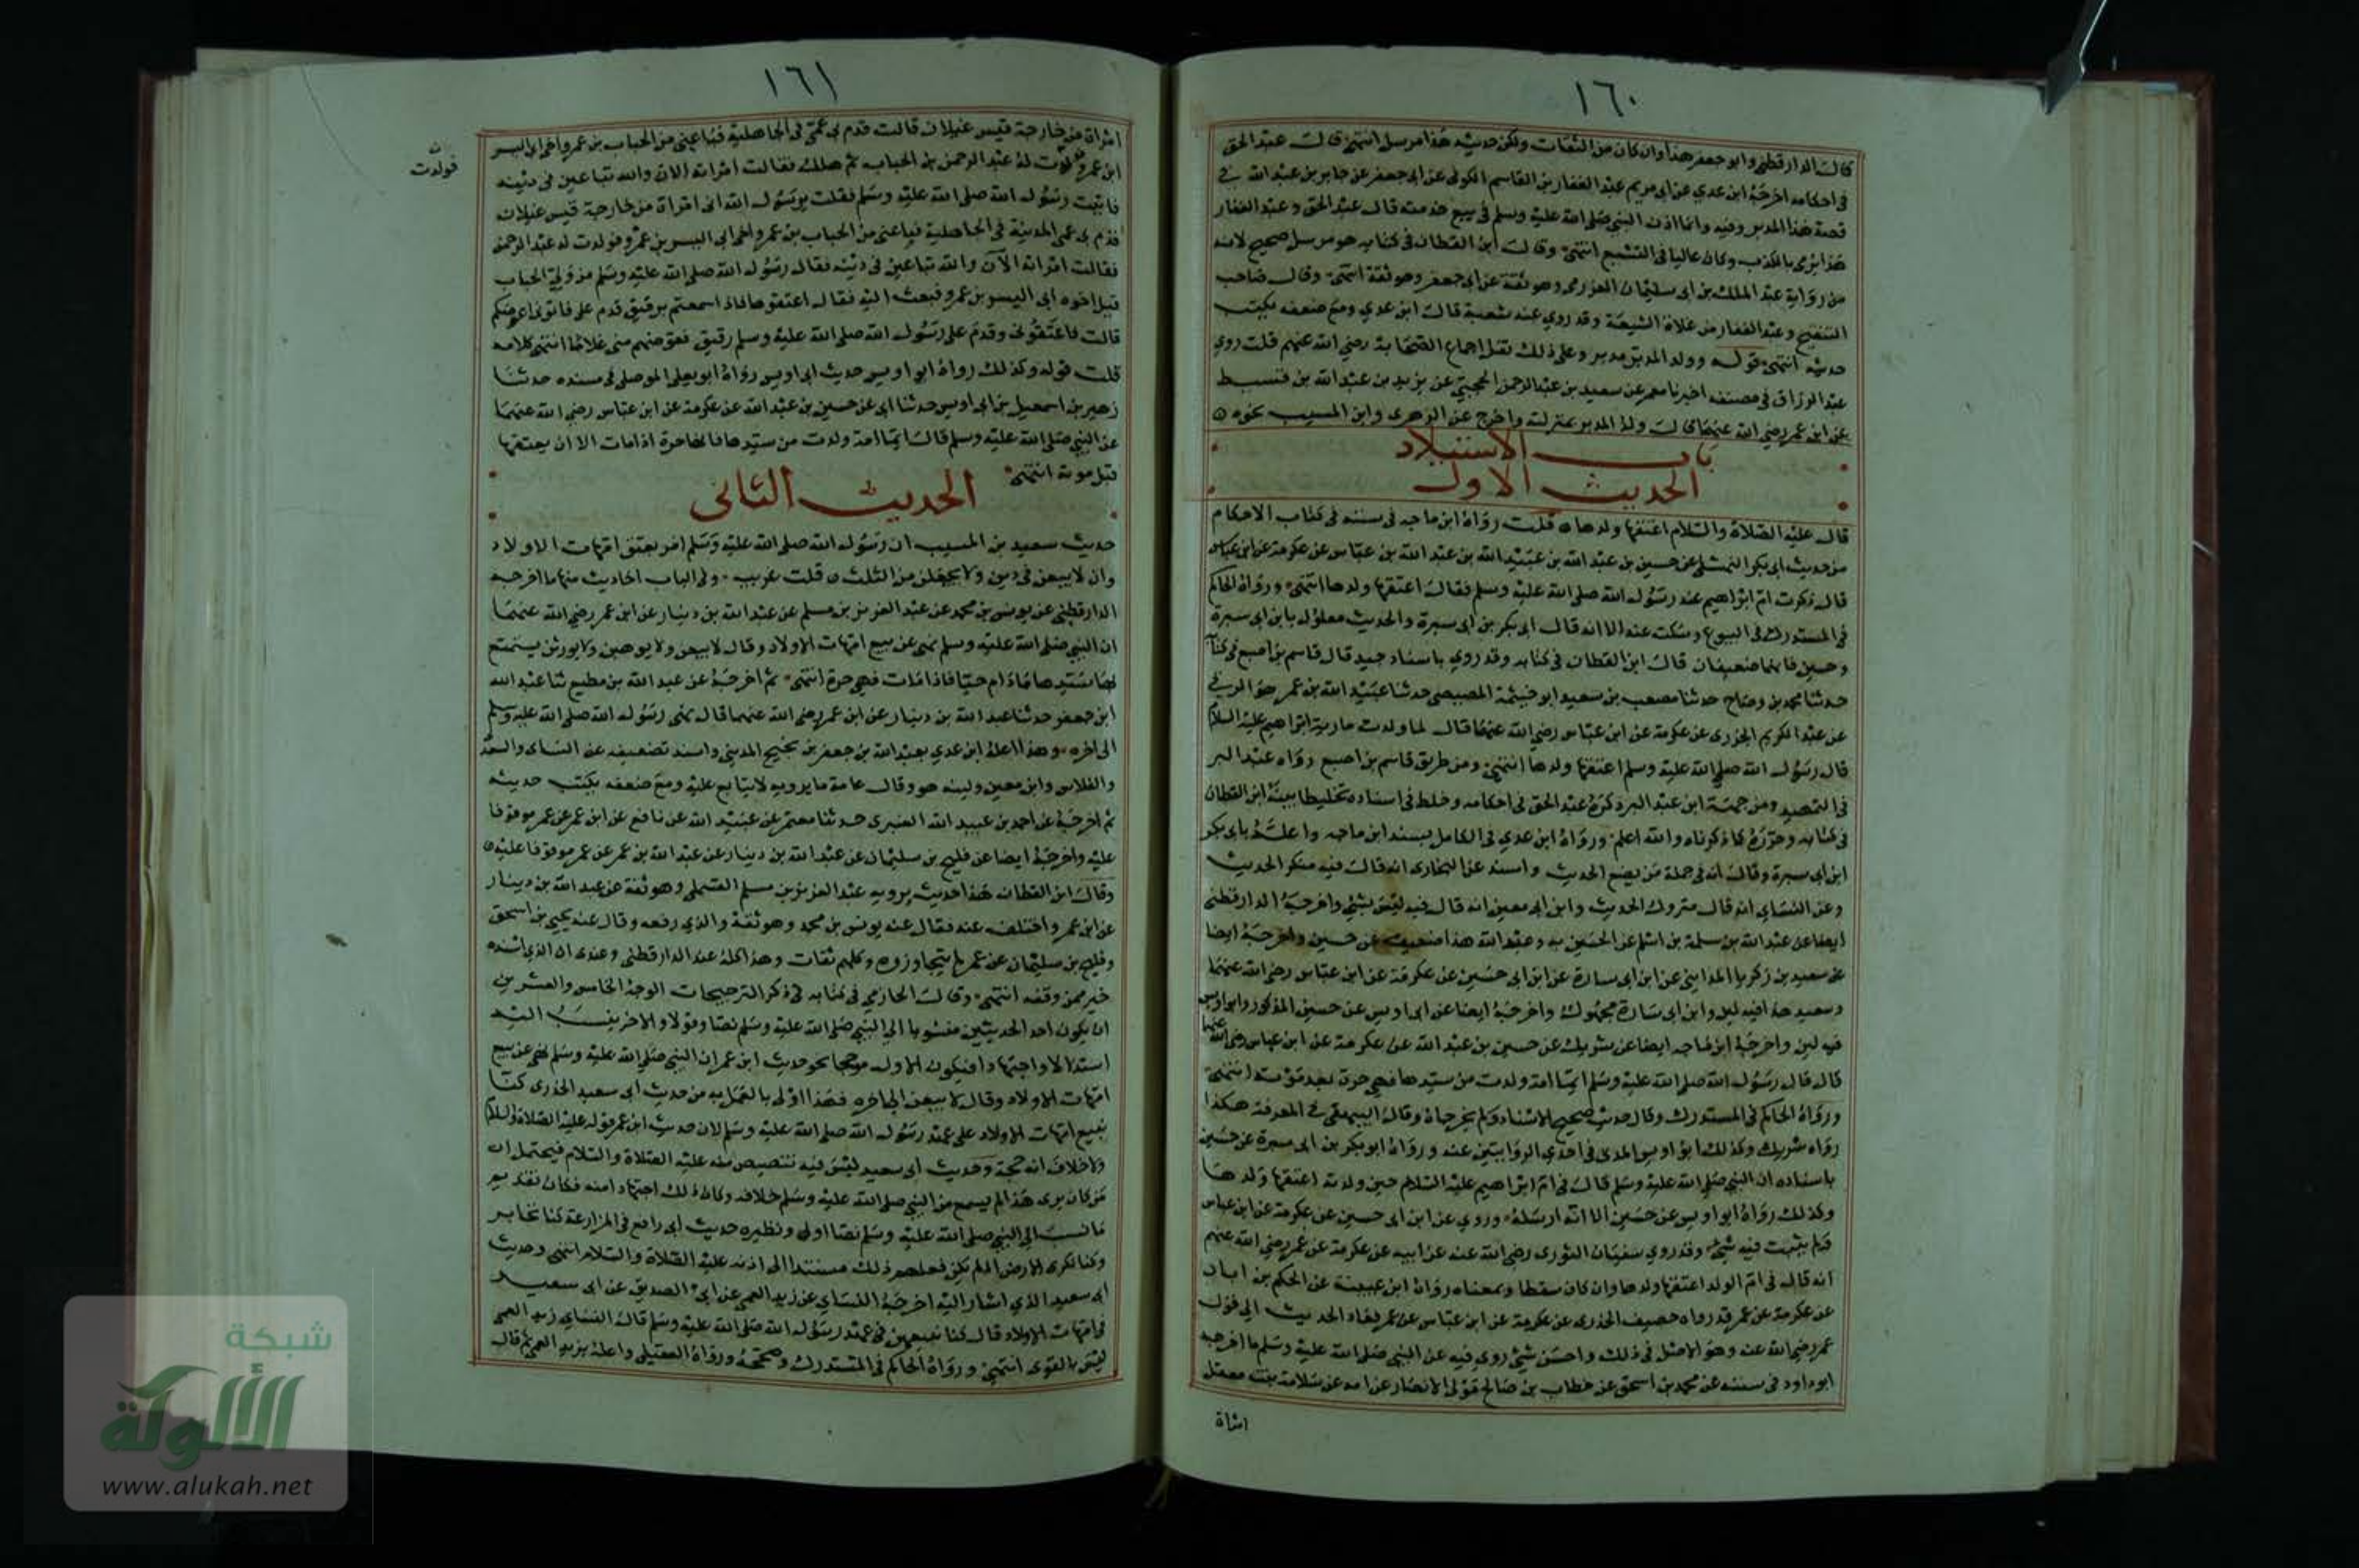 ١٦٠
قال الدارقطني وابو جعفر هذا وان كان من الثقات ولكن حديثه هذا مرسل انتهى قال عبد الحق
في احكامه اخرجه ابن عدي عن ابي مريم عبد الغفار بن القاسم الكوفي عن ابي جعفر عن جابر بن عبد الله في
قصة هذا المدبر وفيه وانما اذن النبي صلى الله عليه وسلم في بيع خدمته قال عبد الحق وعبد الغفار
هذا يرمى بالكذب وكان غاليا في التشيع انتهى وقال ابن القطان في كتابه هو مرسل صحيح لانه
من رواية عبد الملك بن ابي سليمان العزرمي وهو ثقة عن ابي جعفر وهو ثقة انتهى وقال صاحب
التنقيح وعبد الغفار من غلاة الشيعة وقد روي عنه شعبة قال ابن عدي ومع ضعفه يكتب
حديثه انتهى قوله وولد المدبر مدبر وعلى ذلك نقل اجماع الصحابة رضي الله عنهم قلت روي
عبد الرزاق في مصنفه اخبرنا معمر عن سعيد بن عبد الرحمن الجحجبي عن يزيد بن عبد الله بن قسيط
عن ابن عمر رضي الله عنهما قال ولد المدبر بمنزلته واخرج عن الزهري وابن المسيب نحوه
باب الاستيلاد
الحديث الاول
قال عليه الصلاة والسلام اعتقها ولدها قلت رواه ابن ماجه في سننه في كتاب الاحكام
من حديث ابي بكر النهشلي عن حسين بن عبد الله بن عبيد الله بن عبد الله بن عباس عن عكرمة عن ابن عباس
قال ذكرت ام ابراهيم عند رسول الله صلى الله عليه وسلم فقال اعتقها ولدها انتهى ورواه الحاكم
في المستدرك في البيوع وسكت عنه الا انه قال ابي بكر بن ابي سبرة والحديث معلول بابن ابي سبرة
وحسين فانهما ضعيفان قال ابن القطان في كتابه وقد روي باسناد جيد قال قاسم بن اصبغ في كتابه
حدثنا محمد بن وضاح حدثنا مصعب بن سعيد ابو خيثمة المصيصي حدثنا عبيد الله بن عمر هو الرقي
عن عبد الكريم الجزري عن عكرمة عن ابن عباس رضي الله عنهما قال لما ولدت مارية ابراهيم عليه السلام
قال رسول الله صلى الله عليه وسلم اعتقها ولدها انتهى ومن طريق قاسم بن اصبغ رواه عبد البر
في التمهيد ومن جهة ابن عبد البر ذكره عبد الحق في احكامه وخلط في اسناده تخليطا بينه ابن القطان
في كتابه وحرره كما ذكرناه والله اعلم ورواه ابن عدي في الكامل بسند ابن ماجه واعله بابي بكر
ابن ابي سبرة وقال انه في جملة من يضع الحديث واسند عن البخاري انه قال فيه منكر الحديث
وعن النسائي انه قال متروك الحديث وابن ابي معين انه قال فيه ليس بشي واخرجه الدارقطني
ايضا عن عبد الله بن سلمة بن اسلم عن الحسين به وعبد الله هذا ضعيف عن حسين واخرجه ايضا
عن سعيد بن زكريا المدايني عن ابن ابي سارة عن ابن ابي حسين عن عكرمة عن ابن عباس رضي الله عنهما
وسعيد هذا فيه لين وابن ابي سارة مجهول واخرجه ايضا عن ابي اويس عن حسين المذكور وابو اويس
فيه لين واخرجه ابن ماجه ايضا عن شريك عن حسين بن عبد الله عن عكرمة عن ابن عباس رضي الله عنهما
قال قال رسول الله صلى الله عليه وسلم ايما امة ولدت من سيدها فهي حرة بعد موته انتهى
ورواه الحاكم في المستدرك وقال حديث صحيح الاسناد ولم يخرجاه وقال البيهقي في المعرفة هكذا
رواه شريك وكذلك ابو اويس المدني في احدى الروايتين عنه ورواه ابو بكر بن ابي سبرة عن حسين
باسناده ان النبي صلى الله عليه وسلم قال في ام ابراهيم عليه السلام حين ولدته اعتقها ولدها
وكذلك رواه ابو اويس عن حسين الا انه ارسله وروي عن ابن ابي حسين عن عكرمة عن ابن عباس
ولم يثبت فيه شي وقد روي سفيان الثوري رضي الله عنه عن ابيه عن عكرمة عن عمر رضي الله عنهم
انه قال في ام الولد اعتقها ولدها وان كان سقطا وبمعناه رواه ابن عيينة عن الحكم بن ابان
عن عكرمة عن عمر قد رواه خصيف الجزري عن عكرمة عن ابن عباس عن عمر فعاد الحديث الى قول
عمر رضي الله عنه وهو الاصل في ذلك واحسن شي روي فيه عن النبي صلى الله عليه وسلم ما اخرجه
ابو داود في سننه عن محمد بن اسحق عن خطاب بن صالح مولى الانصار عن امه عن سلامة بنت معقل
امراة
١٦١
امراة من خارجة قيس عيلان قالت قدم بي عمي في الجاهلية فباعني من الحباب بن عمرو اخي ابي اليسر
ابن عمرو فولدت له عبد الرحمن بن الحباب ثم هلك فقالت امراته الان والله تباعين في دينه
فولدت
فاتيت رسول الله صلى الله عليه وسلم فقلت يرسول الله اني امراة من خارجة قيس عيلان
قدم بي عمي المدينة في الجاهلية فباعني من الحباب بن عمرو اخي ابي اليسر بن عمرو فولدت له عبد الرحمن
فقالت امراته الآن والله تباعين في دينه فقال رسول الله صلى الله عليه وسلم من ولي الحباب
قيل اخوه ابي اليسر بن عمرو فبعث اليه فقال اعتقوها فاذا سمعتم برقيق قدم علي فاتوني اعوضكم
قالت فاعتقوني وقدم على رسول الله صلى الله عليه وسلم رقيق فعوضهم مني غلاما انتهى كلامه
قلت قوله وكذلك رواه ابو اويس حديث ابي اويس رواه ابو يعلى الموصلي في مسنده حدثنا
زهير بن اسمعيل بن ابي اويس حدثنا ابي عن حسين بن عبد الله عن عكرمة عن ابن عباس رضي الله عنهما
عن النبي صلى الله عليه وسلم قال ايما امة ولدت من سيدها فانها حرة اذا مات الا ان يعتقها
قبل موته انتهى
الحديث الثاني
حديث سعيد بن المسيب ان رسول الله صلى الله عليه وسلم امر بعتق امهات الاولاد
وان لا يبعن في دين ولا يجعلن من الثلث قلت غريب وفي الباب احاديث منها ما اخرجه
الدارقطني عن يونس بن محمد عن عبد العزيز بن مسلم عن عبد الله بن دينار عن ابن عمر رضي الله عنهما
ان النبي صلى الله عليه وسلم نهى عن بيع امهات الاولاد وقال لا يبعن ولا يوهبن ولا يورثن يستمتع
بها سيدها مادام حيا فاذا مات فهي حرة انتهى ثم اخرجه عن عبد الله بن مطيع ثنا عبد الله
ابن جعفر حدثنا عبد الله بن دينار عن ابن عمر رضي الله عنهما قال نهى رسول الله صلى الله عليه وسلم
الى اخره وهذا اعله ابن عدي بعبد الله بن جعفر بن نجيح المديني واسند تضعيفه عن النسائي والسعدي
والفلاس وابن معين ولينه هو وقال عامة ما يرويه لا يتابع عليه ومع ضعفه يكتب حديثه
ثم اخرجه عن احمد بن عبيد الله العنبري حدثنا معتمر عن عبيد الله عن نافع عن ابن عمر عن عمر موقوفا
عليه واخرجه ايضا عن فليح بن سليمان عن عبد الله بن دينار عن عبد الله بن عمر عن عمر موقوفا عليه
وقال ابن القطان هذا حديث يرويه عبد العزيز بن مسلم القسملي وهو ثقة عن عبد الله بن دينار
عن ابن عمر واختلف عنه فقال عنه يونس بن محمد وهو ثقة والذي رفعه وقال عنه يحيى بن اسحق
وفليح بن سليمان عن عمر لم يتجاوزوه وكلهم ثقات وهذا كله عند الدارقطني وعندي ان الذي اسنده
خير ممن وقفه انتهى وقال الحازمي في كتابه في ذكر الترجيحات الوجه الخامس والعشرين
ان يكون احد الحديثين منسوبا الى النبي صلى الله عليه وسلم نصا وقولا والاخر ينسب اليه
استدلالا واجتهادا فيكون الاول مرجحا نحو حديث ابن عمر ان النبي صلى الله عليه وسلم نهى عن بيع
امهات الاولاد وقال لا يبعن الى اخره فهذا اولى بالعمل به من حديث ابي سعيد الخدري كنا
نبيع امهات الاولاد على عهد رسول الله صلى الله عليه وسلم لان حديث ابن عمر قوله عليه الصلاة والسلام
ولا خلاف انه حجة وحديث ابي سعيد ليس فيه تنصيص منه عليه الصلاة والسلام فيحتمل ان
من كان يرى هذا لم يسمع من النبي صلى الله عليه وسلم خلافه وكان ذلك اجتهادا منه فكان تقديم
ما نسب الى النبي صلى الله عليه وسلم نصا اولى ونظيره حديث ابي رافع في المزارعة كنا نخابر
وكنا نكري الارض الم لم يكن فعلهم ذلك مستندا الى اذنه عليه الصلاة والسلام انتهى وحديث
ابي سعيد الذي اشار اليه اخرجه النسائي عن زيد العمي عن ابي الصديق عن ابي سعيد
في امهات الاولاد قال كنا نبيعهن في عهد رسول الله صلى الله عليه وسلم قال النسائي زيد العمي
ليس بالقوي انتهى ورواه الحاكم في المستدرك وصححه ورواه العقيلي واعله بزيد العمي ثم قال
شبكة
الألوكة
www.alukah.net